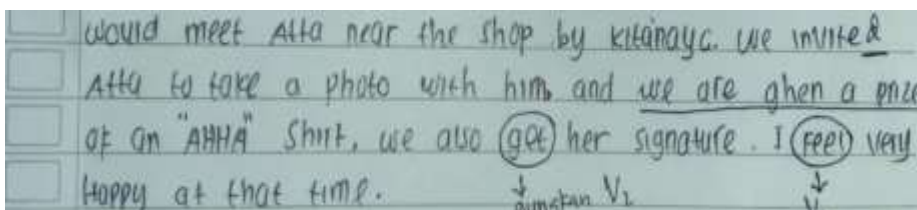 would meet Atta near the shop by kitanayc. we invited
Atta to take a photo with him and we are ghen a prize
of an "AHHA" Shirt, we also get her signature. I feel very
Happy at that time.
V2